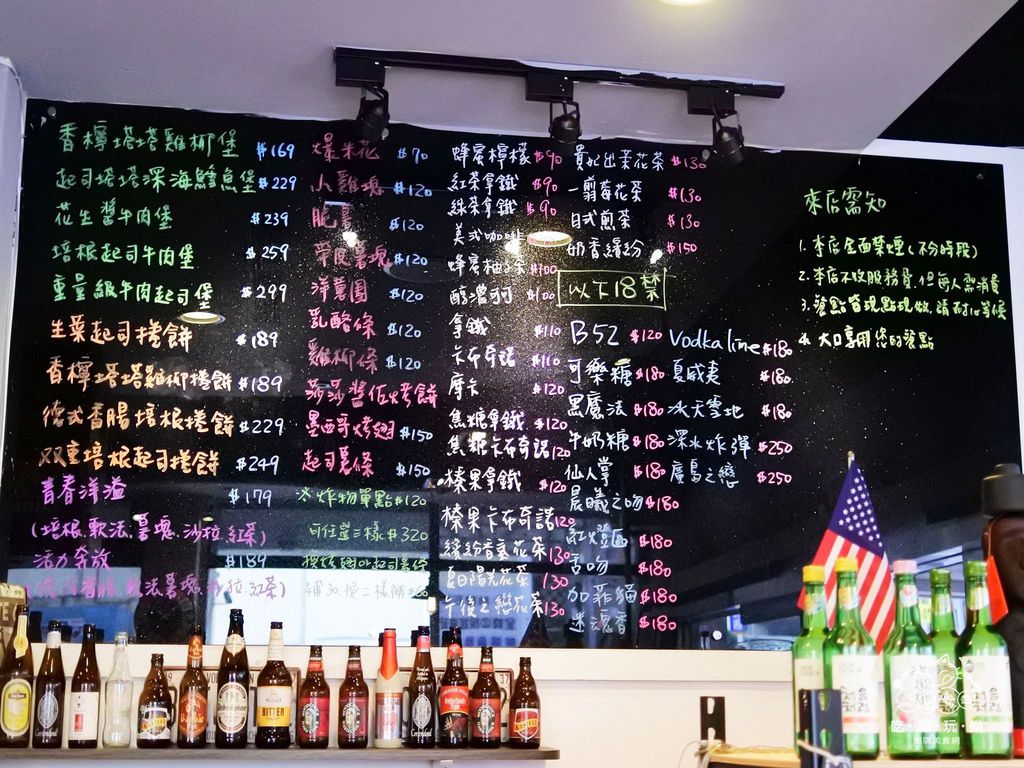 香檸塔塔雞柳堡 $169
起司塔塔深海鱈魚堡 $229
花生醬牛肉堡 $239
培根起司牛肉堡 $259
重量級牛肉起司堡 $299
生菜起司捲餅 $189
香檸塔塔雞柳捲餅 $189
德式香腸培根捲餅 $229
双重培根起司捲餅 $249
青春洋溢 $179
(培根.軟法.薯塊.沙拉.紅茶)
活力奔放 $189
爆米花 $70
小雞塊 $120
脆薯 $120
帶皮薯塊 $120
洋蔥圈 $120
乳酪條 $120
雞柳條 $120
莎莎醬佐烤餅
墨西哥烤翅 $150
起司薯條 $150
炸物單點 $120
可任選三樣 $320
蜂蜜檸檬 $90
紅茶拿鐵 $90
綠茶拿鐵 $90
美式咖啡
蜂蜜柚子茶 $100
醇濃可可 $100
拿鐵 $110
卡布奇諾 $110
摩卡 $120
焦糖拿鐵 $120
焦糖卡布奇諾 120
榛果拿鐵 $120
榛果卡布奇諾 120
繽紛音氣花茶 130
夏日陽光花茶 130
午後之戀花茶 130
貴妃出茉花茶 $130
一翦莓花茶 $130
日式煎茶 $130
奶香繽紛 $150
以下18禁
B52 $120
可樂糖 $180
黑魔法 $180
牛奶糖 $180
仙人掌 $180
晨曦之吻 $180
紅燈區 $180
舌吻 $180
加菲貓 $180
迷魂香 $180
Vodka lime $180
夏威夷 $180
冰天雪地 $180
深水炸彈 $250
廣島之戀 $250
來店需知
1. 本店全面禁煙(不分時段)
2. 本店不收服務費,但每人需消費
3. 餐點皆現點現做,請耐心等候
4. 大口享用您的餐點
BITTER